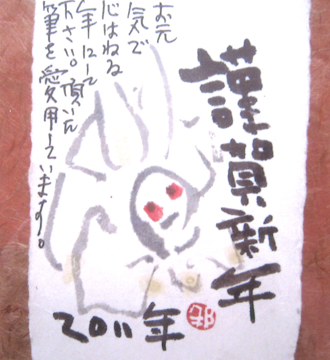 謹賀新年
お元
気で
心はねる
年にして
下さい。頂いた
筆を愛用しています。
2011年